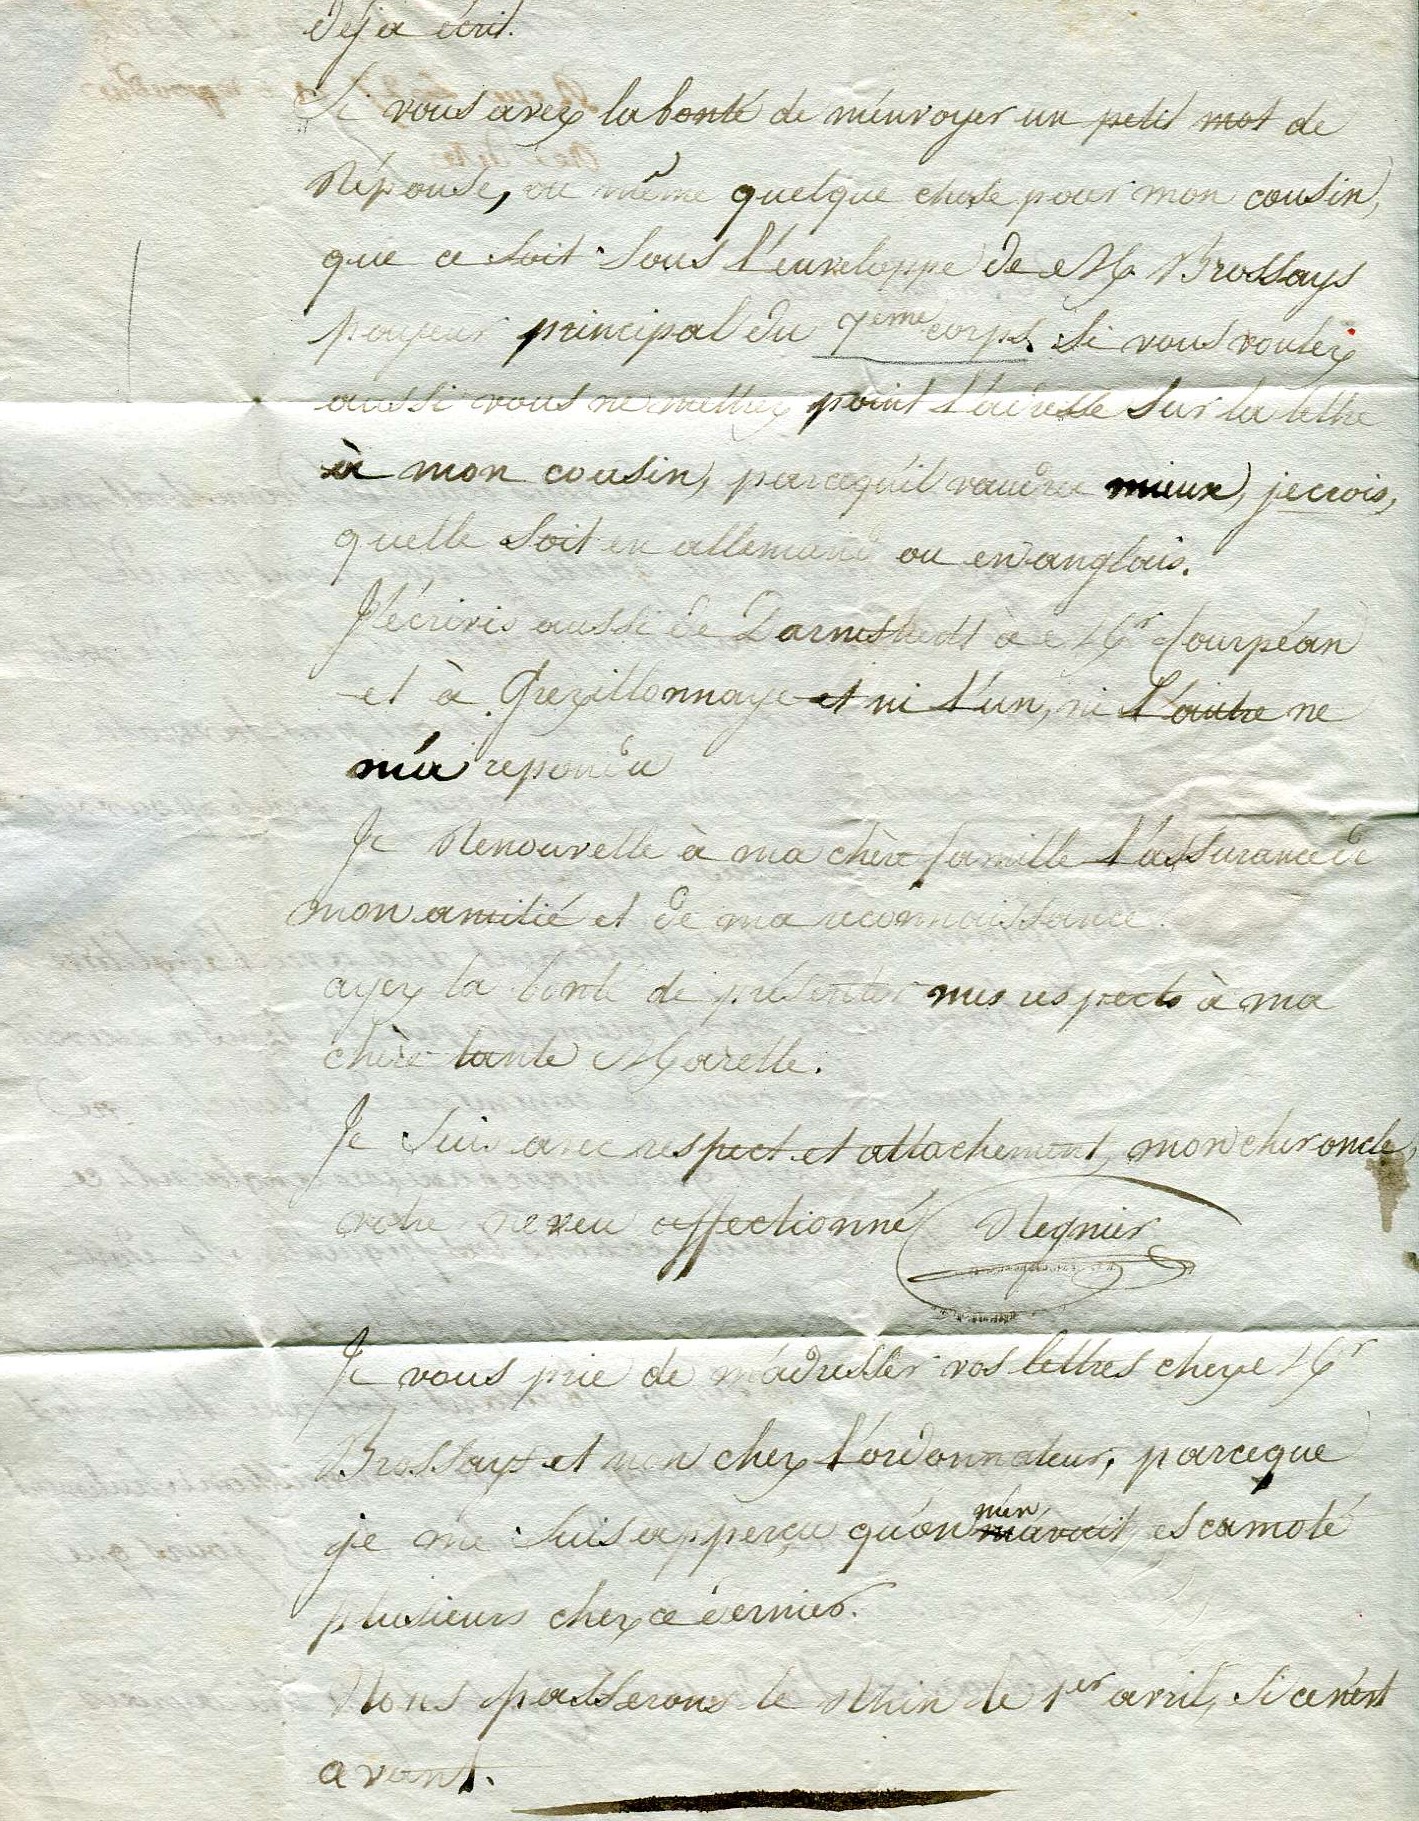 deja écrit.
Si vous avez la bonté de m'envoyer un petit mot de
Réponse, ou même quelque chose pour mon cousin,
que ce soit sous l'enveloppe de M. Brossays
payeur principal du 7eme corps. Si vous voulez
aussi vous ne mettrez point l'adresse sur la lettre
à mon cousin, parcequ'il vaudra mieux, je crois,
quelle soit en allemand ou en anglais.
J'écrivis aussi de Darmstadt à Mr Jourpéan
et à Grezillonnaye et ni l'un, ni l'autre ne
m'a repondu
Je Renouvelle à ma chère famille l'assurance de
mon amitié et de ma reconnaissance.
ayez la bonté de présenter mes respects à ma
chère tante Marette.
Je suis avec respect et attachement, mon cher oncle,
votre neveu affectionné Regnier
Je vous prie de m'adresser vos lettres chez Mr
Brossays et non chez l'ordonnateur, parceque
je me suis apperçu qu'on m'en avait escamoté
plusieurs chez ce dernier.
Nous passerons le Rhin le 1er avril, si ce n'est
avant.